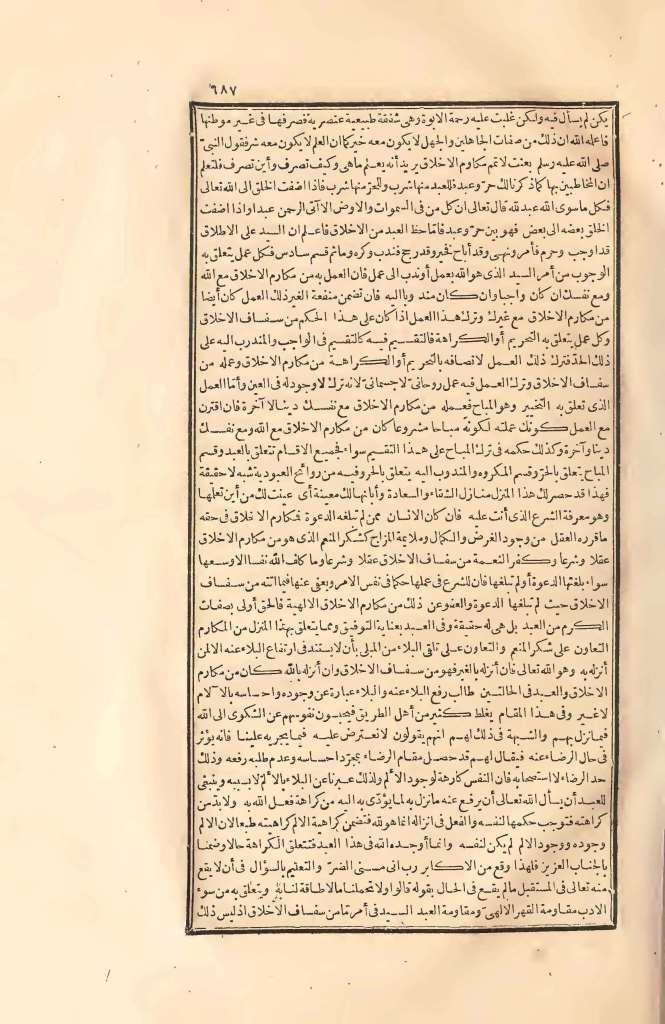 ٦٨٧
يكن لم يسأل فيه ولكن غلبت عليه رحمة الابوة وهى شفقة طبيعية عنصرية فصرفها فى غير موطنها
فاعلمه الله ان ذلك من صفات الجاهلين والجهل لا يكون معه خير كما ان العلم لا يكون معه شر فقول النبى
صلى الله عليه وسلم بعثت لاتمم مكارم الاخلاق يريد أنه يعلم ماهى وكيف تصرف وأين تصرف فلتعلم
ان المخاطبين بها كما ذكرنالك حر وعبد فللعبد منها شرب وللحر منها شرب فاذا اضفت الخلق الى الله تعالى
فكل ما سوى الله عبد لله قال تعالى ان كل من فى السموات والارض الا آتى الرحمن عبدا واذا اضفت
الخلق بعضه الى بعض فهو بين حر وعبد فاما حظ العبد من الاخلاق فاعلم ان السيد على الاطلاق
قد اوجب وحرم فأمر ونهى وقد أباح فخير وقد رجح فندب وكره وما ثم قسم سادس فكل عمل يتعلق به
الوجوب من أمر السيد الذى هو الله بعمل أو ندب الى عمل فان العمل به من مكارم الاخلاق مع الله
ومع نفسك ان كان واجبا وان كان مندوبا اليه فان تضمن منفعة الغير ذلك العمل كان أيضا
من مكارم الاخلاق مع غيرك وترك هذا العمل اذا كان على هذا الحكم من سفساف الاخلاق
وكل عمل يتعلق به التحريم أو الكراهة فالتقسيم فيه كالتقسيم فى الواجب والمندوب اليه على
ذلك الحد فترك ذلك العمل لاتصافه بالتحريم أو الكراهة من مكارم الاخلاق وعمله من
سفساف الاخلاق وترك العمل فيه عمل روحانى لا جسمانى لانه ترك لا وجود له فى العين وأما العمل
الذى تعلق به التخيير وهو المباح فعمله من مكارم الاخلاق مع نفسك دينا لا آخرة فان اقترن
مع العمل كونك عملته لكونه مباحا مشروعا كان من مكارم الاخلاق مع الله ومع نفسك
دينا وآخرة وكذلك حكمه فى ترك المباح على هذا التقسيم سواء فجميع الاقسام تتعلق بالعبد وقسم
المباح يتعلق بالحر وقسم المكروه والمندوب اليه يتعلق بالحر وفيه من روائح العبودية شبه لا حقيقة
فهذا قد حصرلك هذا المنزل منازل الشقاء والسعادة وأبانها لك معينة أى عينت لك من أين تعلمها
وهو معرفة الشرع الذى أنت عليه فان كان الانسان ممن لم تبلغه الدعوة فمكارم الاخلاق فى حقه
ما قرره العقل من وجود الغرض والكمال وملايمة المزاج كشكر المنعم الذى هو من مكارم الاخلاق
عقلا وشرعا وكفر النعمة من سفساف الاخلاق عقلا وشرعا وما كلف الله نفسا الا وسعها
سواء بلغتها الدعوة أو لم تبلغها فان للشرع فى عملها حكما فى نفس الامر ويعفى عنها فيما اتته من سفساف
الاخلاق حيث لم تبلغها الدعوة والعفو عن ذلك من مكارم الاخلاق الالهية فالحق أولى بصفات
الكرم من العبد بل هى له حقيقة وفى العبد بعناية التوفيق ومما يتعلق بهذا المنزل من المكارم
التعاون على شكر المنعم والتعاون على تلقى البلاء من المبلى بأن لا يستند فى ارتفاع البلاء عنه الا لمن
أنزله به وهو الله تعالى فان أنزله بالغير فهو من سفساف الاخلاق وان أنزله بالله كان من مكارم
الاخلاق والعبد فى الحالتين طالب رفع البلاء عنه والبلاء عبارة عن وجوده واحساسه بالآلام
لا غير وفى هذا المقام يغلط كثير من أهل الطريق فيحبسون نفوسهم عن الشكوى الى الله
فيما نزل بهم والشبهة فى ذلك لهم انهم يقولون لا نعترض عليه فيما يجريه علينا فانه يؤثر
فى حال الرضاء عنه فيقال لهم قد حصل مقام الرضاء بمجرد احساسه وعدم طلبه رفعه وذلك
حد الرضاء لا استصحابه فان النفس كارهة لوجود الألم ولذلك عبرنا عن البلاء بالألم لا بسببه وينبغى
للعبد أن يسأل الله تعالى أن يرفع عنه ما نزل به لما يؤدى به اليه من كراهة فعل الله به ولابد من
كراهته فتوجب حكمها لنفسه والفعل فى انزاله انما هو لله فتضمن كراهية الالم كراهيته طبعا لان الالم
وجوده ووجود الالم لم يكن لنفسه وانما أوجده الله فى هذا العبد فتتعلق الكراهة حالا وضمنا
بالجناب العزيز فلهذا وقع من الاكابر رب انى مسنى الضر والتعليم بالسؤال فى أن لا يقع
منه تعالى فى المستقبل ما لم يقع فى الحال بقوله قالوا ولا تحملنا ما لا طاقة لنا به ويتعلق به من سوء
الادب مقاومة القهر الالهى ومقاومة العبد السيد فى أمر ما من سفساف الاخلاق اذ ليس ذلك